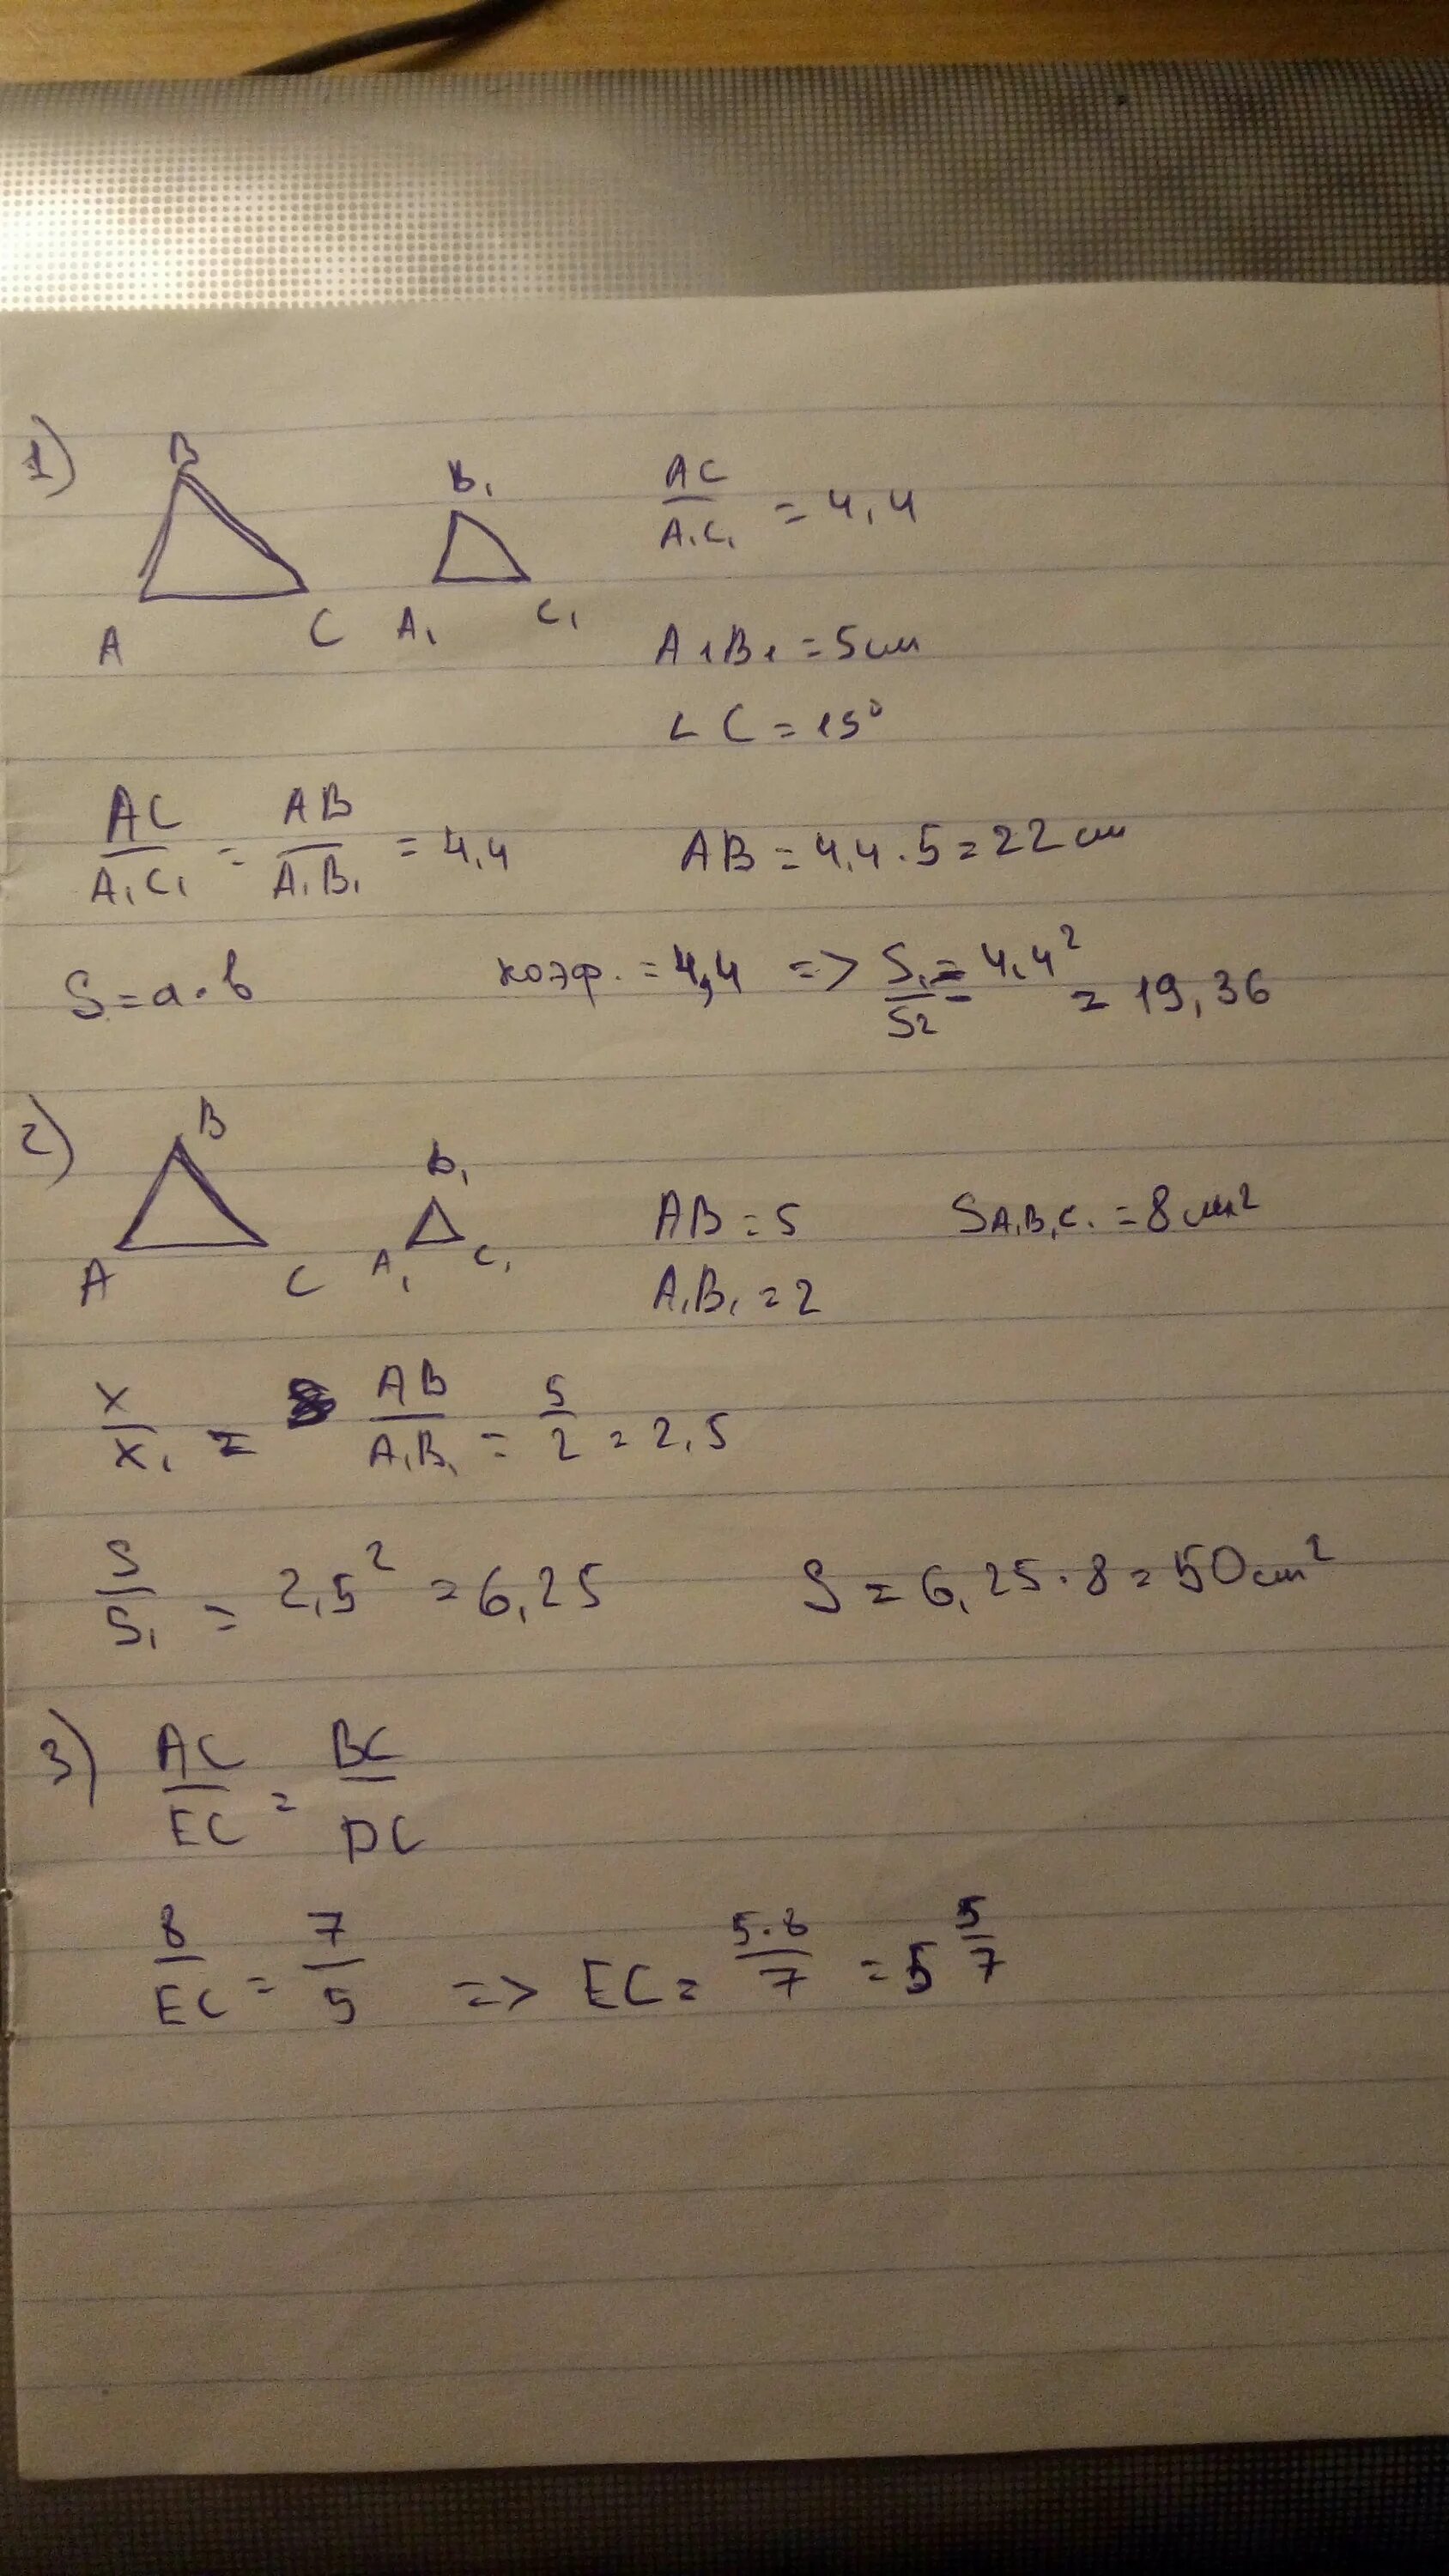 1) B B₁ AC/A₁C₁ = 4,4
A C A₁ C₁ A₁B₁ = 5см
∠ C = 15°
AC/A₁C₁ = AB/A₁B₁ = 4,4 AB = 4,4 · 5 = 22 см
S = a · b коэф. = 4,4 => S₁/S₂ = 4,4² = 19,36
2) B B₁ AB = 5 SA₁B₁C₁ = 8 см²
A C A₁ C₁ A₁B₁ = 2
x/x₁ = AB/A₁B₁ = 5/2 = 2,5
S/S₁ = 2,5² = 6,25 S = 6,25 · 8 = 50 см²
3) AC/EC = BC/DC
8/EC = 7/5 => EC = 5·8/7 = 5 5/7